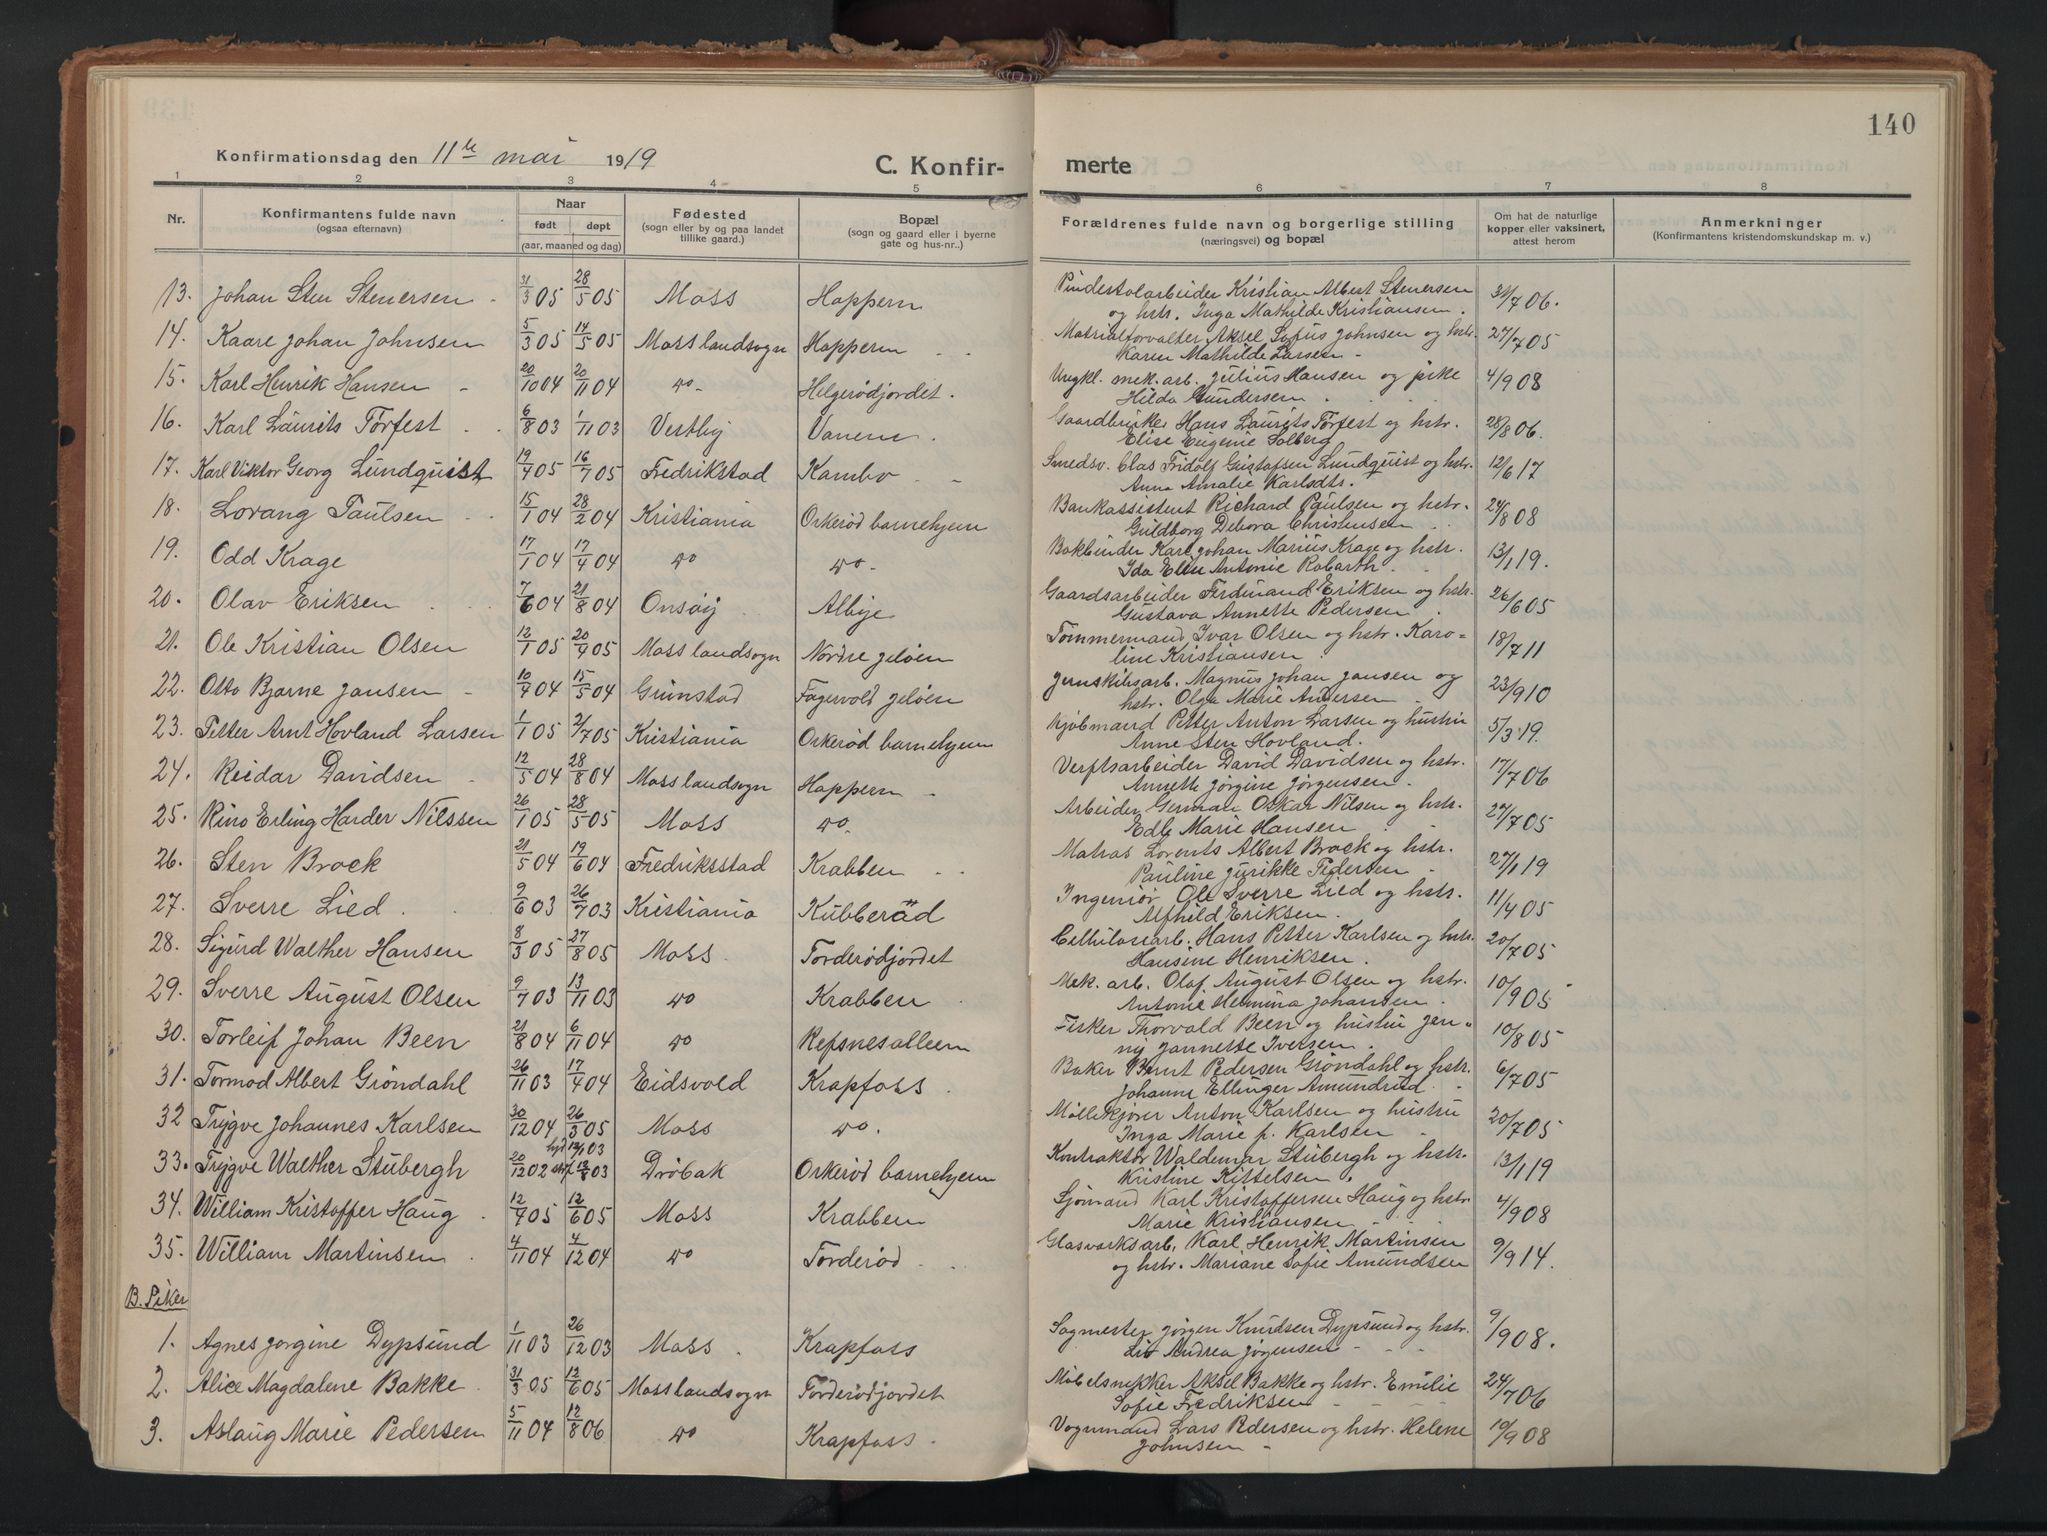 140
Konfirmationsdag den 11te mai 1919
C. Konfir-
merte
1 2 3 4 5 6 7 8
Nr. Konfirmantens fulde navn (ogsaa efternavn) Naar født døpt (aar, maaned og dag) Fødested (sogn eller by og paa landet tillike gaard.) Bopæl (sogn og gaard eller i byerne gate og hus-nr..) Forældrenes fulde navn og borgerlige stilling (næringsvei) og bopæl Om hat de naturlige kopper eller vaksinert, attest herom Anmerkninger (Konfirmantens kristendomskundskap m. v.)
13. Johan Sten Stenersen 31/3 05 28/5 05 Moss Happern Pindestolarbeider Kristian Albert Stenersen 31/7 06.
og hstr. Inga Mathilde Kristiansen.
14. Kaare Johan Johnsen 5/3 05 14/5 05 Moss landsogn Happern Matrialforvalter Aksel Sofus Johnsen og hstr. 27/7 05
Karen Mathilde Larsen
15. Karl Henrik Hansen 20/10 04 20/11 04 do Helgerødjordet. Uregkl. mek. arb. Julius Hansen og pike 4/9 08
Hilda Gundersen
16. Karl Laurits Torfest 6/8 03 1/11 03 Vestby Vanem. Gaardbruker Hans Laurits Torfest og hstr. 28/8 06.
Elise Eugenie Solberg
17. Karl Viktor Georg Lundquist 19/4 05 16/7 05 Fredrikstad Kambo Smedsv. Clas Fridolf Gustafsen Lundquist og hstr. 12/6 17
Anna Amalie Karlsdtr.
18. Lorang Paulsen 15/1 04 28/2 04 Kristiania Orkerød barnehjem Bankassistent Richard Paulsen og hstr. 24/8 08
Guldborg Debora Christensen
19. Odd Krage 17/1 04 17/4 04 do do. Bokbinder Karl Johan Marius Krage og hstr. 13/1 19.
Ida Elise Antonie Robarth
20. Olav Eriksen 7/6 04 21/8 04 Onsøy Albye Gaardsarbeider Ferdinand Eriksen og hstr. 26/6 05
Gustava Annette Pedersen
21. Ole Kristian Olsen 12/1 05 20/4 05 Moss landsogn Nordre Jeløen Tømmermand Ivar Olsen og hstr. Karo- 18/7 11
line Kristiansen
22. Otto Bjarne Jansen 10/4 04 15/5 04 Grimstad Fagervold Jeløen Jernskibsarb. Magnus Johan Jansen og 23/9 10
hstr. Olga Marie Andersen
23. Petter Arnt Hovland Larsen 1/1 05 2/7 05 Kristiania Orkerød barnehjem Kjøbmand Petter Anton Larsen og hustru 5/3 19.
Anne Sten Hovland.
24. Reidar Davidsen 12/5 04 28/8 04 Moss landsogn Happern Verftsarbeider David Davidsen og hstr. 17/7 06
Annette Jørgine Jørgensen
25. Rino Erling Harder Nilssen 26/1 05 28/5 05 Moss do. Arbeider German Oskar Nilsen og hstr. 27/7 05
Edle Marie Hansen
26. Sten Brock 21/5 04 19/6 04 Fredriksstad Krabben Matros Lorents Albert Brock og hstr. 27/1 19
Pauline Jurikke Pedersen
27. Sverre Lied. 9/6 03 26/7 03 Kristiania Kubberød Ingeniør Ole Sverre Lied og hstr. 11/4 05
Alfhild Eriksen.
28. Sigurd Walther Hansen 8/3 05 27/8 05 Moss Torderødjordet Cellulosearb. Hans Petter Karlsen og hstr. 20/7 05
Hansine Henriksen.
29. Sverre August Olsen 9/7 03 13/11 03 do Krabben Mek. arb. Olaf August Olsen og hstr. 10/9 05
Antonie Hermina Johansen
30. Torleif Johan Been 21/8 04 6/11 04 do Refsnesalleen Fisker Thorvald Been og hustru Jen- 10/8 05
ny Jannette Iversen
31. Tormod Albert Grøndahl 26/11 03 17/4 04 Eidsvold Krapfoss Baker Bernt Pedersen Grøndahl og hstr. 6/7 05
Johanne Ellinger Amundrud
32 Trygve Johannes Karlsen 30/12 04 26/3 05 Moss do. Møllekjører Anton Karlsen og hustru 20/7 05
Inga Marie f. Karlsen
33. Trygve Walther Stubergh 20/12 02 03 Drøbak Orkerød barnehjem Kontraktør Waldemar Stubergh og hstr. 13/1 19
Kristine Kittelsen.
34. William Kristoffer Haug 12/4 05 12/6 05 Moss Krabben Sjømand Karl Kristoffersen Haug og hstr. 4/9 08
Marie Kristiansen
35. William Martinsen 4/11 04 4/12 04 do Torderød Glasverksarb. Karl Henrik Martinsen 9/9 14.
og hstr. Mariane Sofie Amundsen
B. Piker
1. Agnes Jørgine Dypsund 1/11 03 26/12 03 Moss Krapfoss Sagmester Jørgen Knudsen Dypsund og hstr. 9/9 08.
Liv Andrea Jørgensen
2. Alice Magdalene Bakke 31/3 05 12/6 05 Moss landsogn Torderødjordet Møbelsnekker Aksel Bakke og hstr. Emilie 24/7 06
Sofie Fredriksen
3. Aslaug Marie Pedersen 5/11 04 12/8 06 do Krapfoss Vognmand Lars Pedersen og hstr. Helene 10/9 08
Johnsen